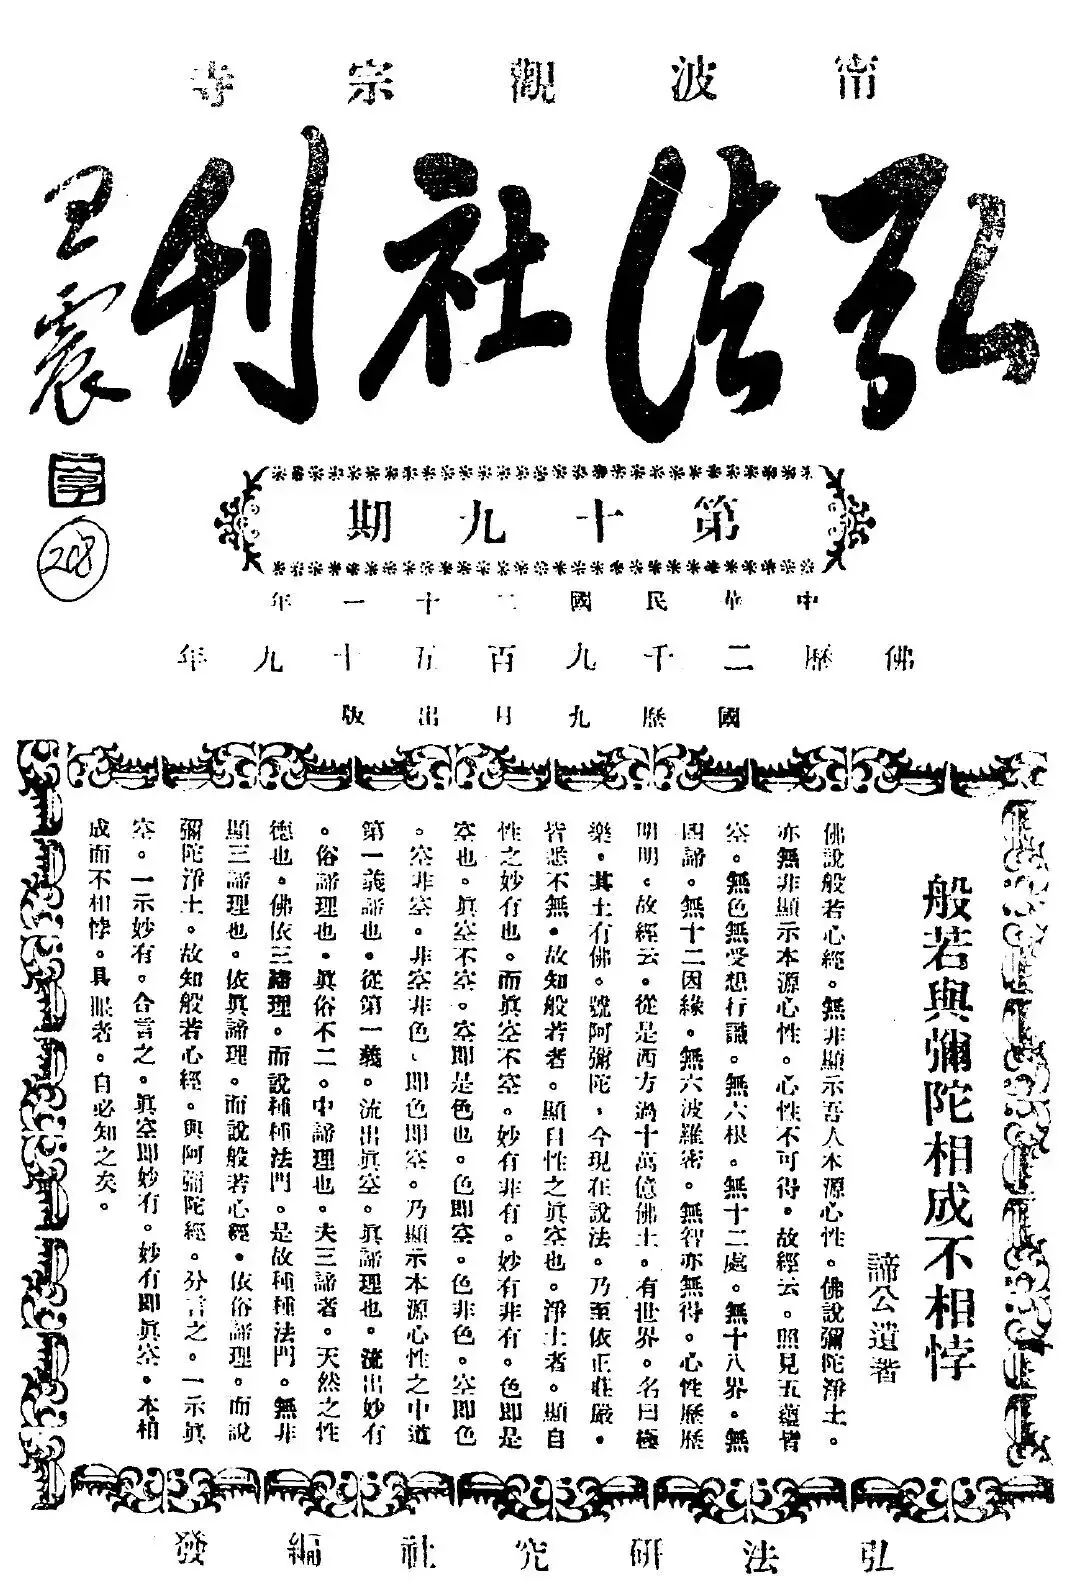 甯波觀宗寺
弘法社刊
王震
208
第十九期
中華民國二十一年
佛歷二千九百五十九年
國歷九月出版
般若與彌陀相成不相悖
諦公遺著
佛說般若心經。無非顯示吾人本源心性。佛說彌陀淨土。
亦無非顯示本源心性。心性不可得。故經云。照見五蘊皆
空。無色無受想行識。無六根。無十二處。無十八界。無
四諦。無十二因緣。無六波羅密。無智亦無得。心性歷歷
明明。故經云。從是西方過十萬億佛土。有世界。名曰極
樂。其土有佛。號阿彌陀。今現在說法。乃至依正莊嚴。
皆悉不無。故知般若者。顯自性之眞空也。淨土者。顯自
性之妙有也。而眞空不空。妙有非有。妙有非有。色即是
空也。眞空不空。空即是色也。色即空。色非色。空即色
。空非空。非空非色、即色即空。乃顯示本源心性之中道
第一義諦也。從第一義。流出眞空。眞諦理也。流出妙有
。俗諦理也。眞俗不二。中諦理也。夫三諦者。天然之性
德也。佛依三諦理。而說種種法門。是故種種法門。無非
顯三諦理也。依眞諦理。而說般若心經。依俗諦理。而說
彌陀淨土。故知般若心經。與阿彌陀經。分言之。一示眞
空。一示妙有。合言之。眞空即妙有。妙有即眞空。本相
成而不相悖。具眼者。自必知之矣。
弘法研究社編發